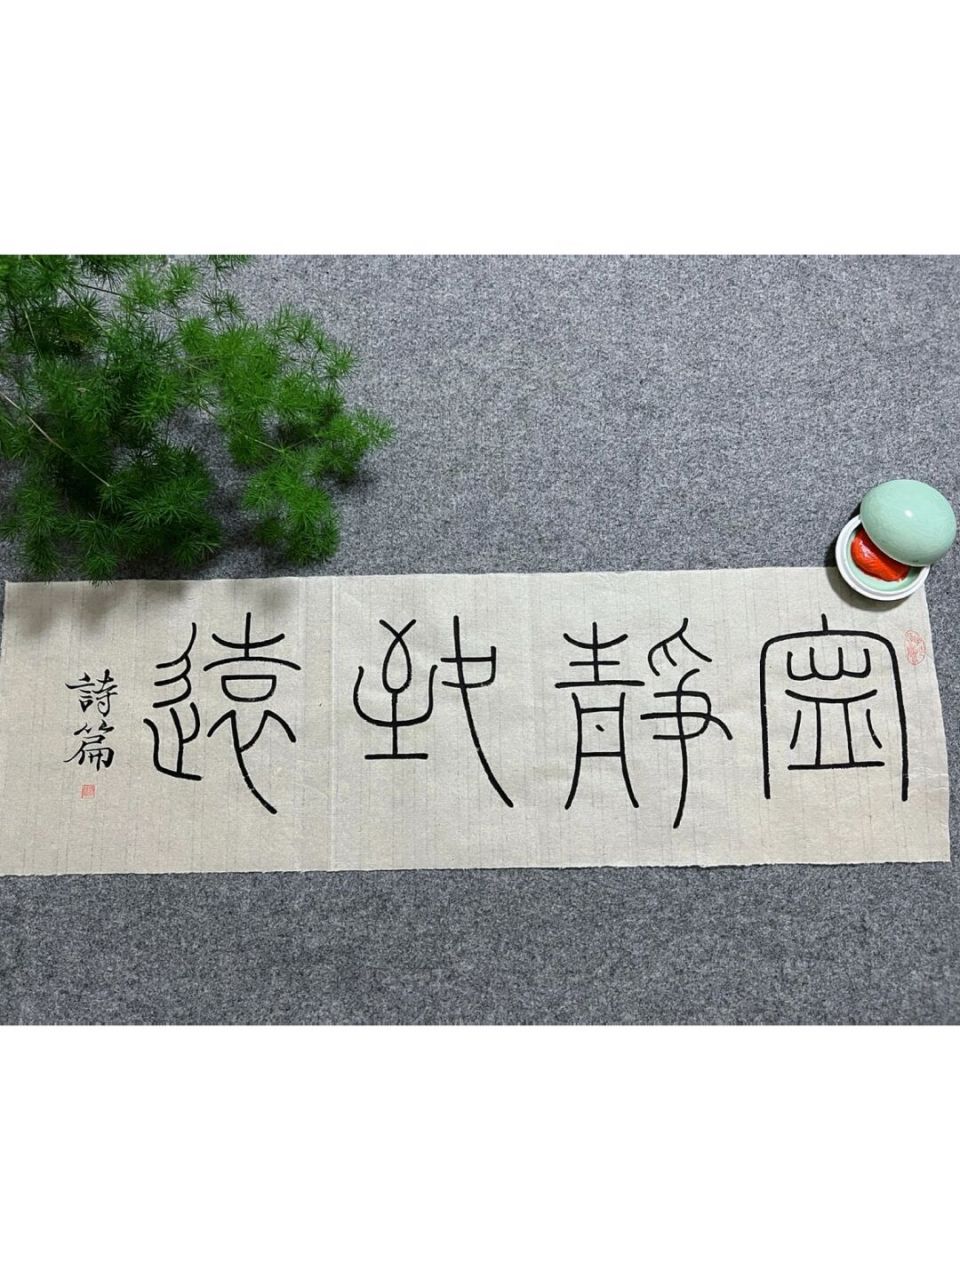 寧靜致遠
詩篇